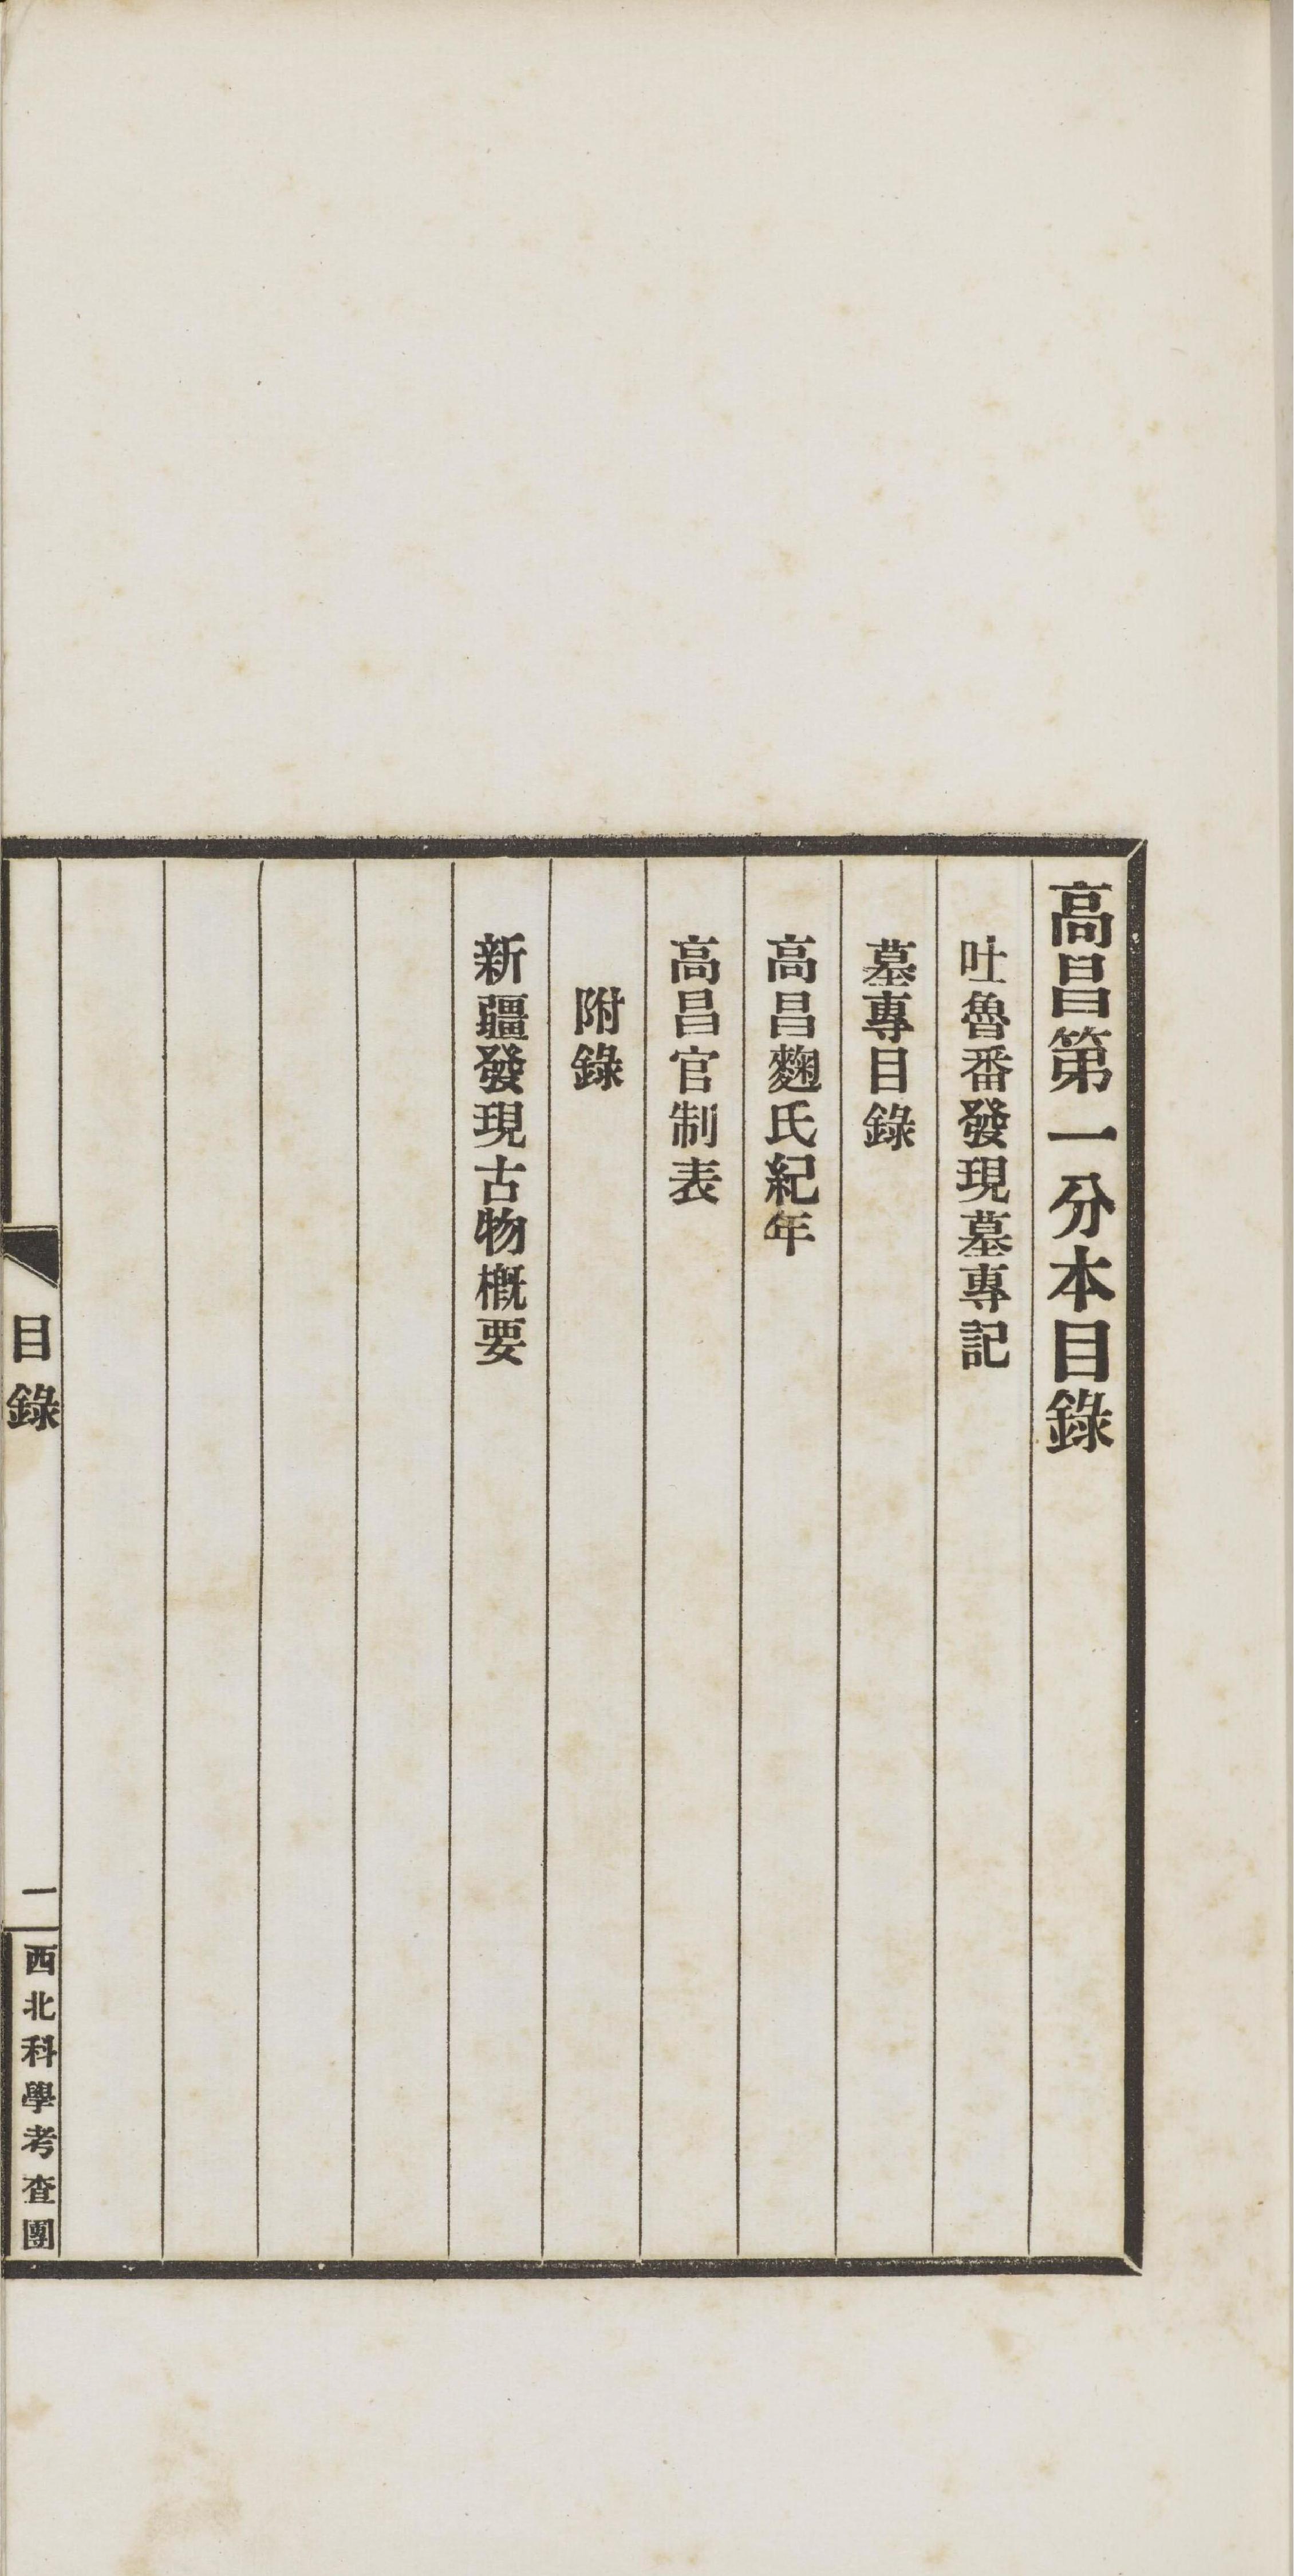 高昌第一分本目錄
吐魯番發現墓專記
墓專目錄
高昌麴氏紀年
高昌官制表
附錄
新疆發現古物概要
目錄
一
西北科學考查團